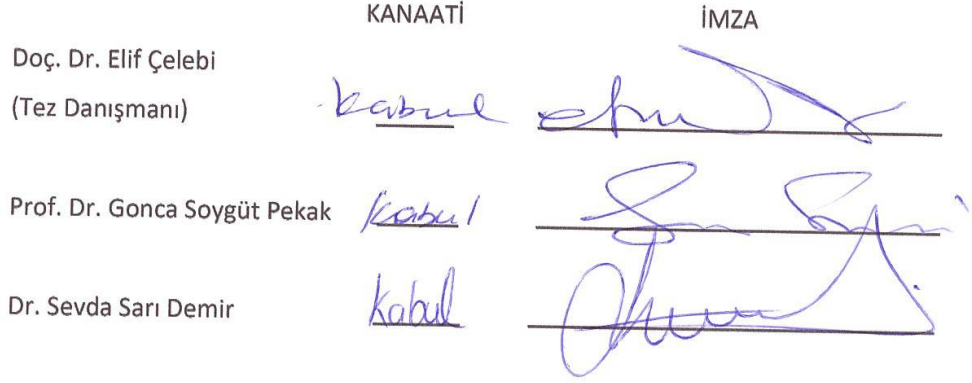 KANAATİ İMZA
Doç. Dr. Elif Çelebi
(Tez Danışmanı) kabul
Prof. Dr. Gonca Soygüt Pekak kabul
Dr. Sevda Sarı Demir kabul